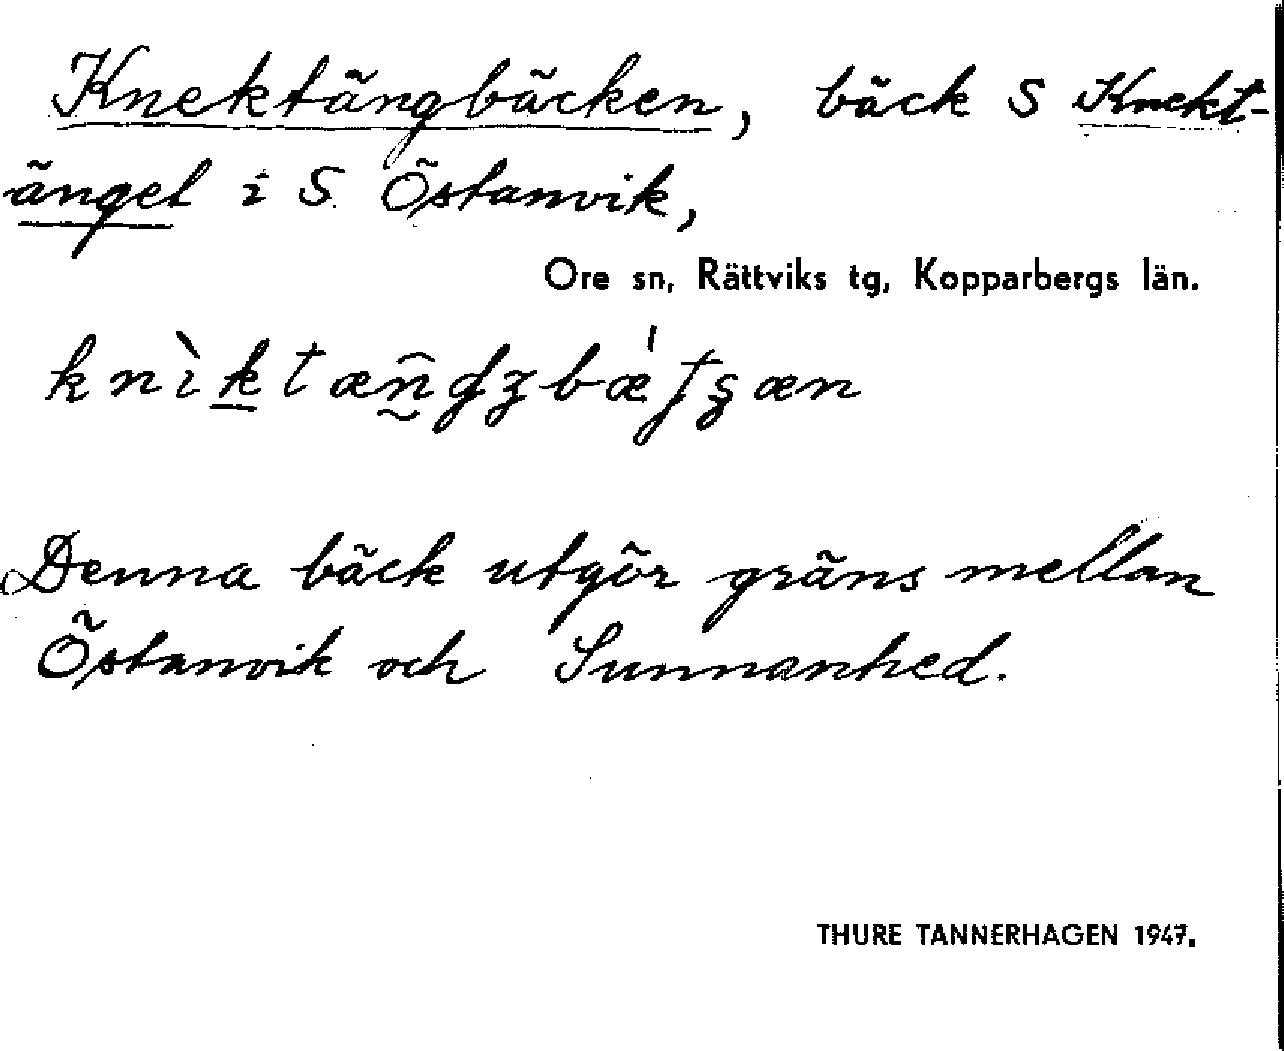 Knektängbäcken, bäck S Knekt-
änget i S. Östanvik,
Ore sn, Rättviks tg, Kopparbergs län.
Denna bäck utgör gräns mellan
Östanvik och Sunnanhed.
THURE TANNERHAGEN 1947.